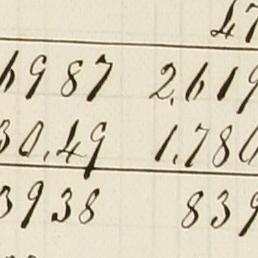 47
6987 2,619
30,49 1,780
3938 839